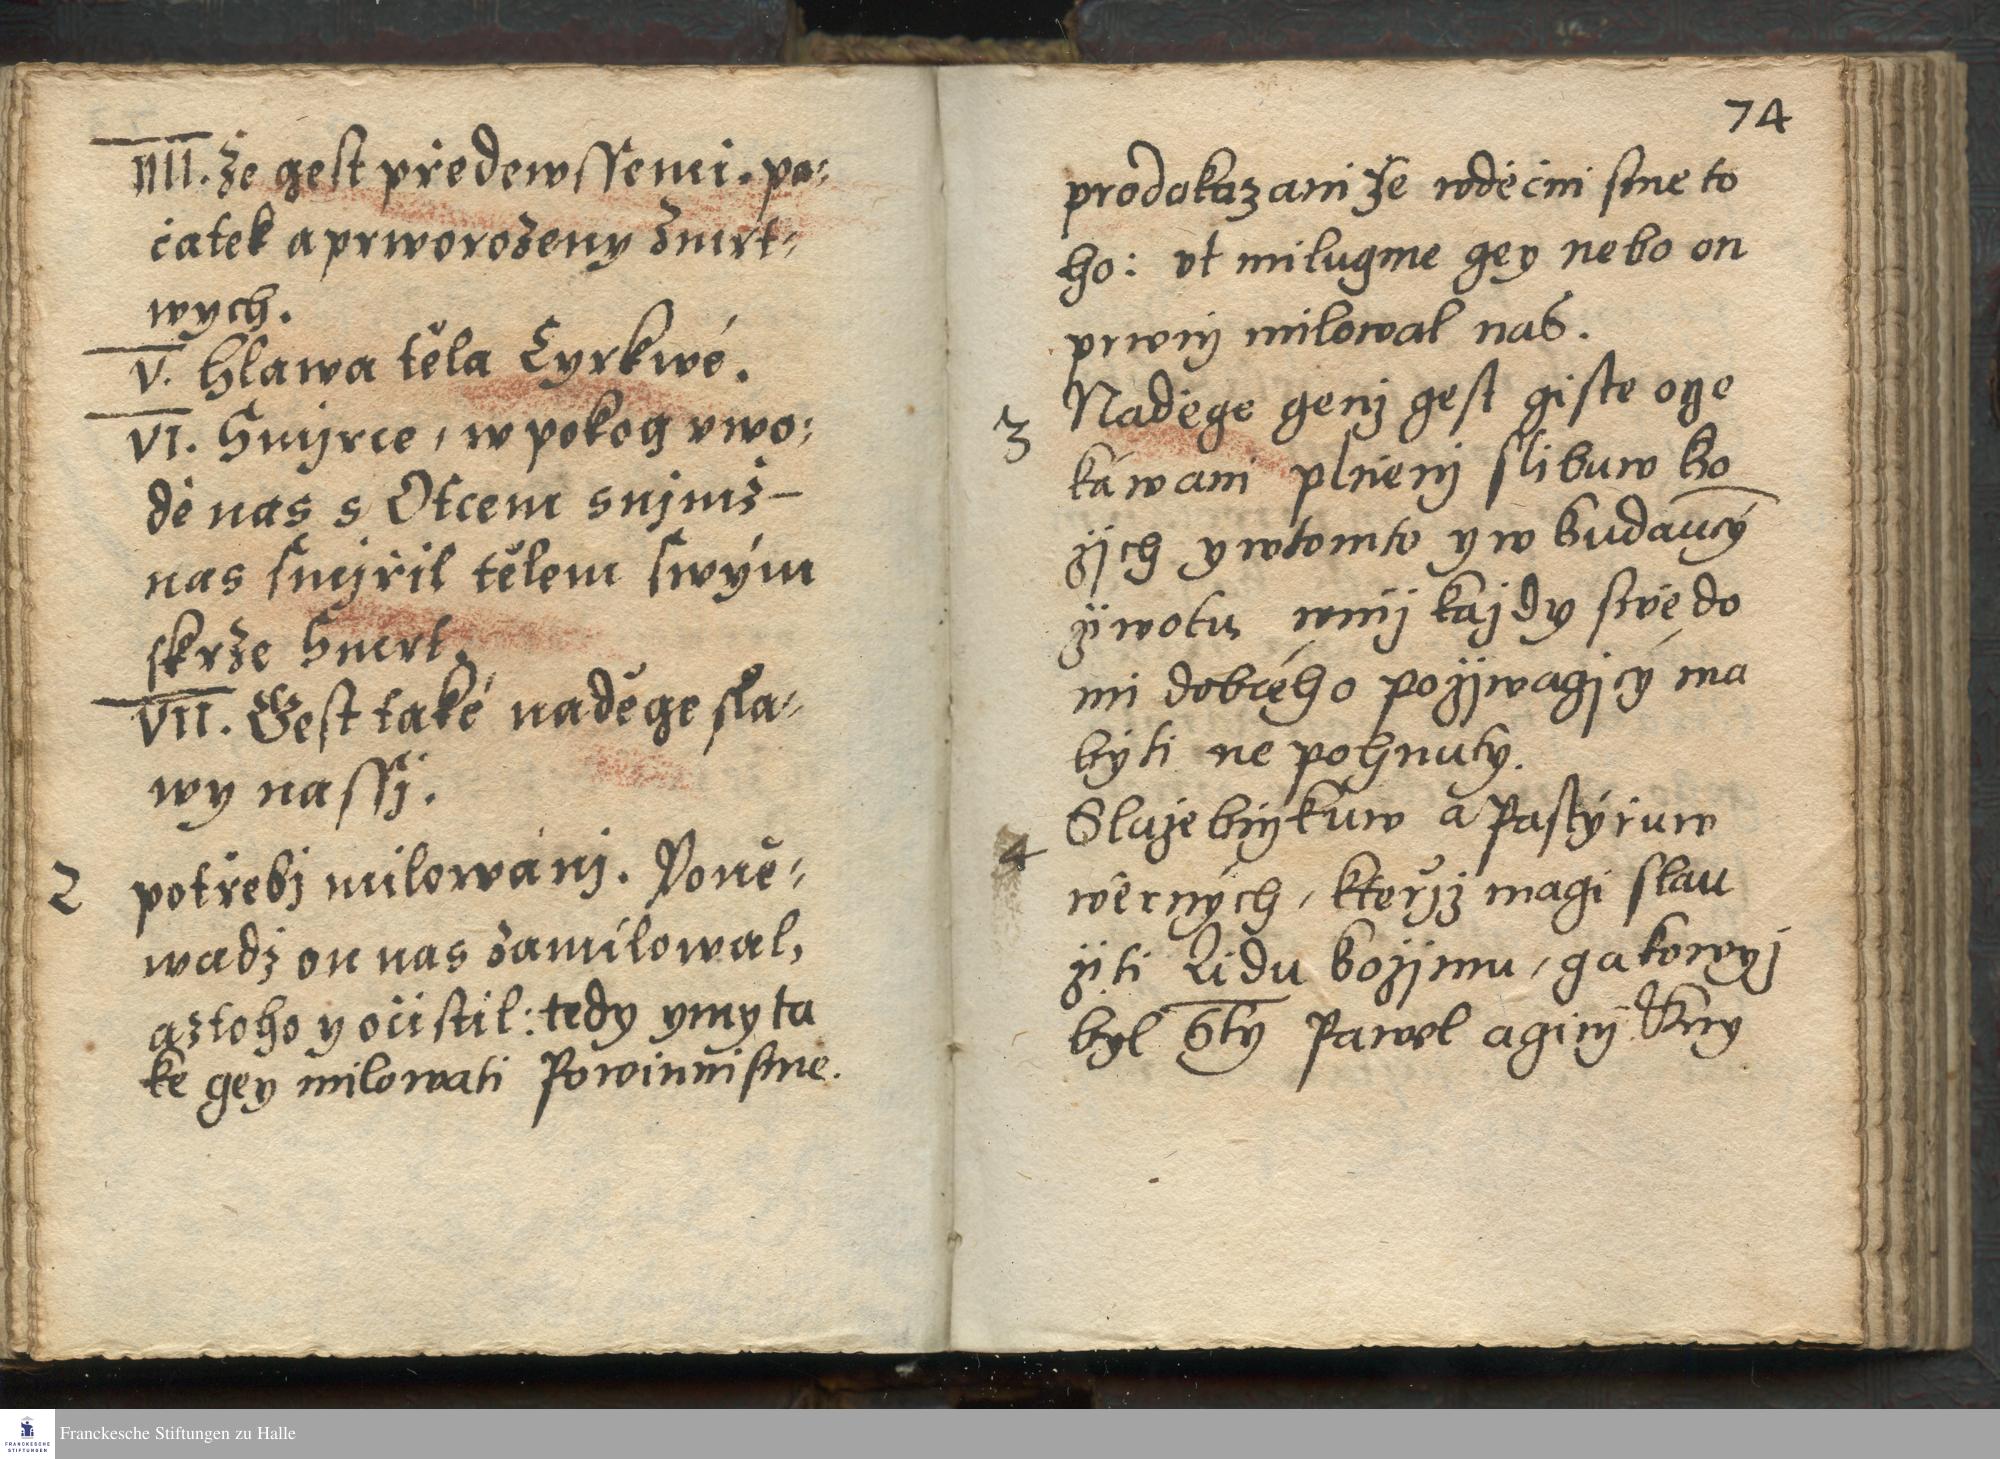 IIII. že gest předewssemi. po-
čatek a prworozeny zmrt-
wych.
V. Hlawa těla Cyrkwé.
VI. Smijrce, w pokog vwo-
dě nas s Otcem snimž
nas smijřil tělem swým
skrže Smrt.
VII. Gest také naděge sla-
wy nassj.
2 potřebj milowánj. Poně-
wadž on nas zamilowal,
a z toho y očistil: tedy y my ta
ke gey milowati Powinni sme.
74
pro dokazani že wděčni sme to
ho: ut milugme gey nebo on
prwnj milowal nas.
3 Nadege genž gest giste oče
káwani plněnj slibuw bo
žjch y w tomto y w budaucý
žiwotu w nij každy swědo
mi dobrého požjwagjcý ma
býti ne pohnuty.
4 Služebnjkuw a Pastýřuw
wěrných, kteřjž magi slau
žiti Lidu božjmu, gakowyj
byl Sty Pawel a ginj